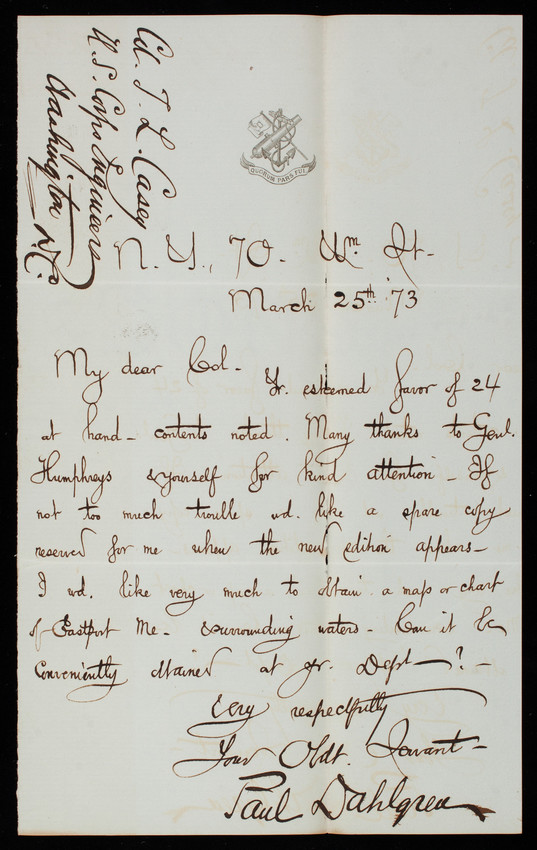 Col. T. L. Casey
U.S. Corps Engineers
Washington D.C.
QUORUM PARS FUI
N. Y., 70. Wm St.
March 25th '73
My dear Col -
Yr. esteemed favor of 24
at hand - contents noted. Many thanks to Genl.
Humphreys & yourself for kind attention - If
not too much trouble wd. like a spare copy
reserved for me when the new edition appears -
I wd. like very much to obtain a map or chart
of Eastport Me. & surrounding waters - Can it be
conveniently obtained at yr. Dept - ? -
Very respectfully
Your Obdt. Servant -
Paul Dahlgren